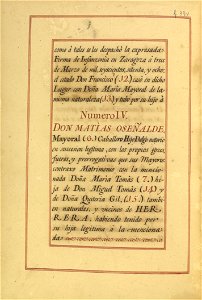 como á tales se les despachó la expresada
Firma de Infanzonía en Zaragoza á trece
de Marzo de mil, setecientos, ochenta, y ocho:
el citado Don Francisco (32.) casó en dicho
Lugar con Doña María Mayoral de la
misma naturaleza (33.) y tubo por su hijo á
Numero IV.
DON MATÍAS OSEÑALDE,
Mayoral (6.) Caballero Hijo Dalgo notorio
su succesion legitima, con las propias
fueros, y prerrogativas que sus Mayores
contraxo Matrimonio con la mencio-
nada Doña María Tomás (7.) hi-
ja de Don Miguel Tomás (34.) y
de Doña Quiteria Gil, (35.) tambi-
en naturales, y vecinos de HER-
RERA, habiendo tenido por
su hija legitima á la mencionada